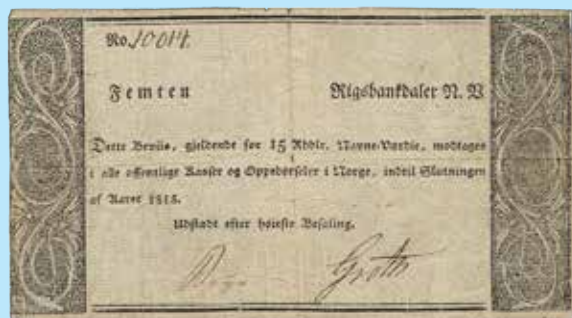 No. 10014.
Femten Rigsbankdaler N. V.
Dette Beviis, gjeldende for 15 Rbdlr. Navne-Værdie, modtages
i alle offentlige Kasser og Oppebørseler i Norge, indtil Slutningen
af Aaret 1815.
Udstædt efter høieste Befaling.